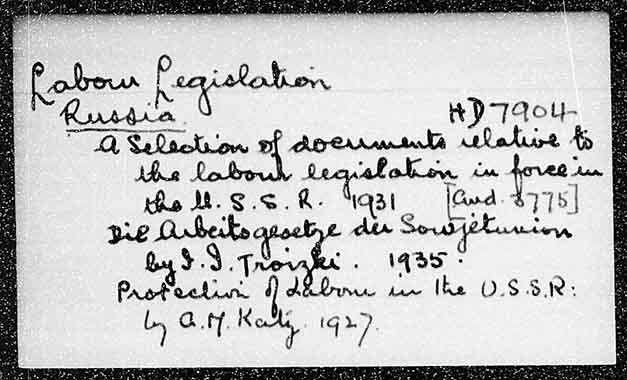 Labour Legislation
Russia. HD7904
A Selection of documents relative to
the labour legislation in force in
the U.S.S.R. 1931 [Cmd. 3775]
Die Arbeitsgesetze der Sowjetunion
by I. I. Troizki. 1935.
Protection of Labour in the U.S.S.R:
by A. Y. Katz. 1927.